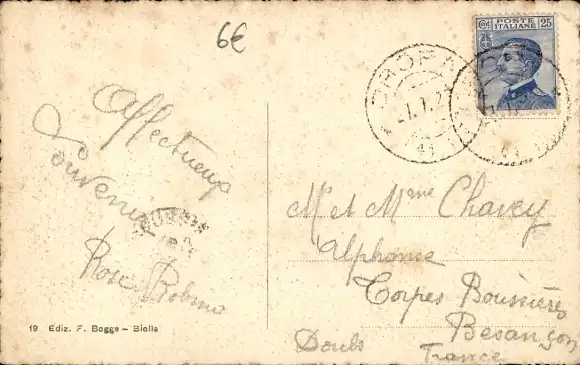 6€
POSTE ITALIANE
Cent. 25
OROPA
Affectueux
Souvenir
Rose
M et Mme Chavey
Alphonse
Torpes Boussières
Besançon
Doubs France
19 Ediz. F. Bogge - Biella